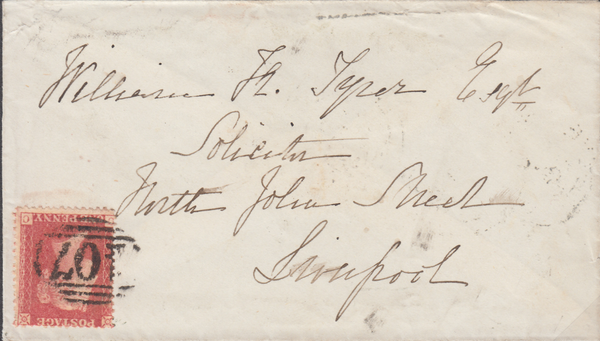 William H. Tyrer Esqr
Solicitor
North John Street
Liverpool
PENNY
POSTAGE